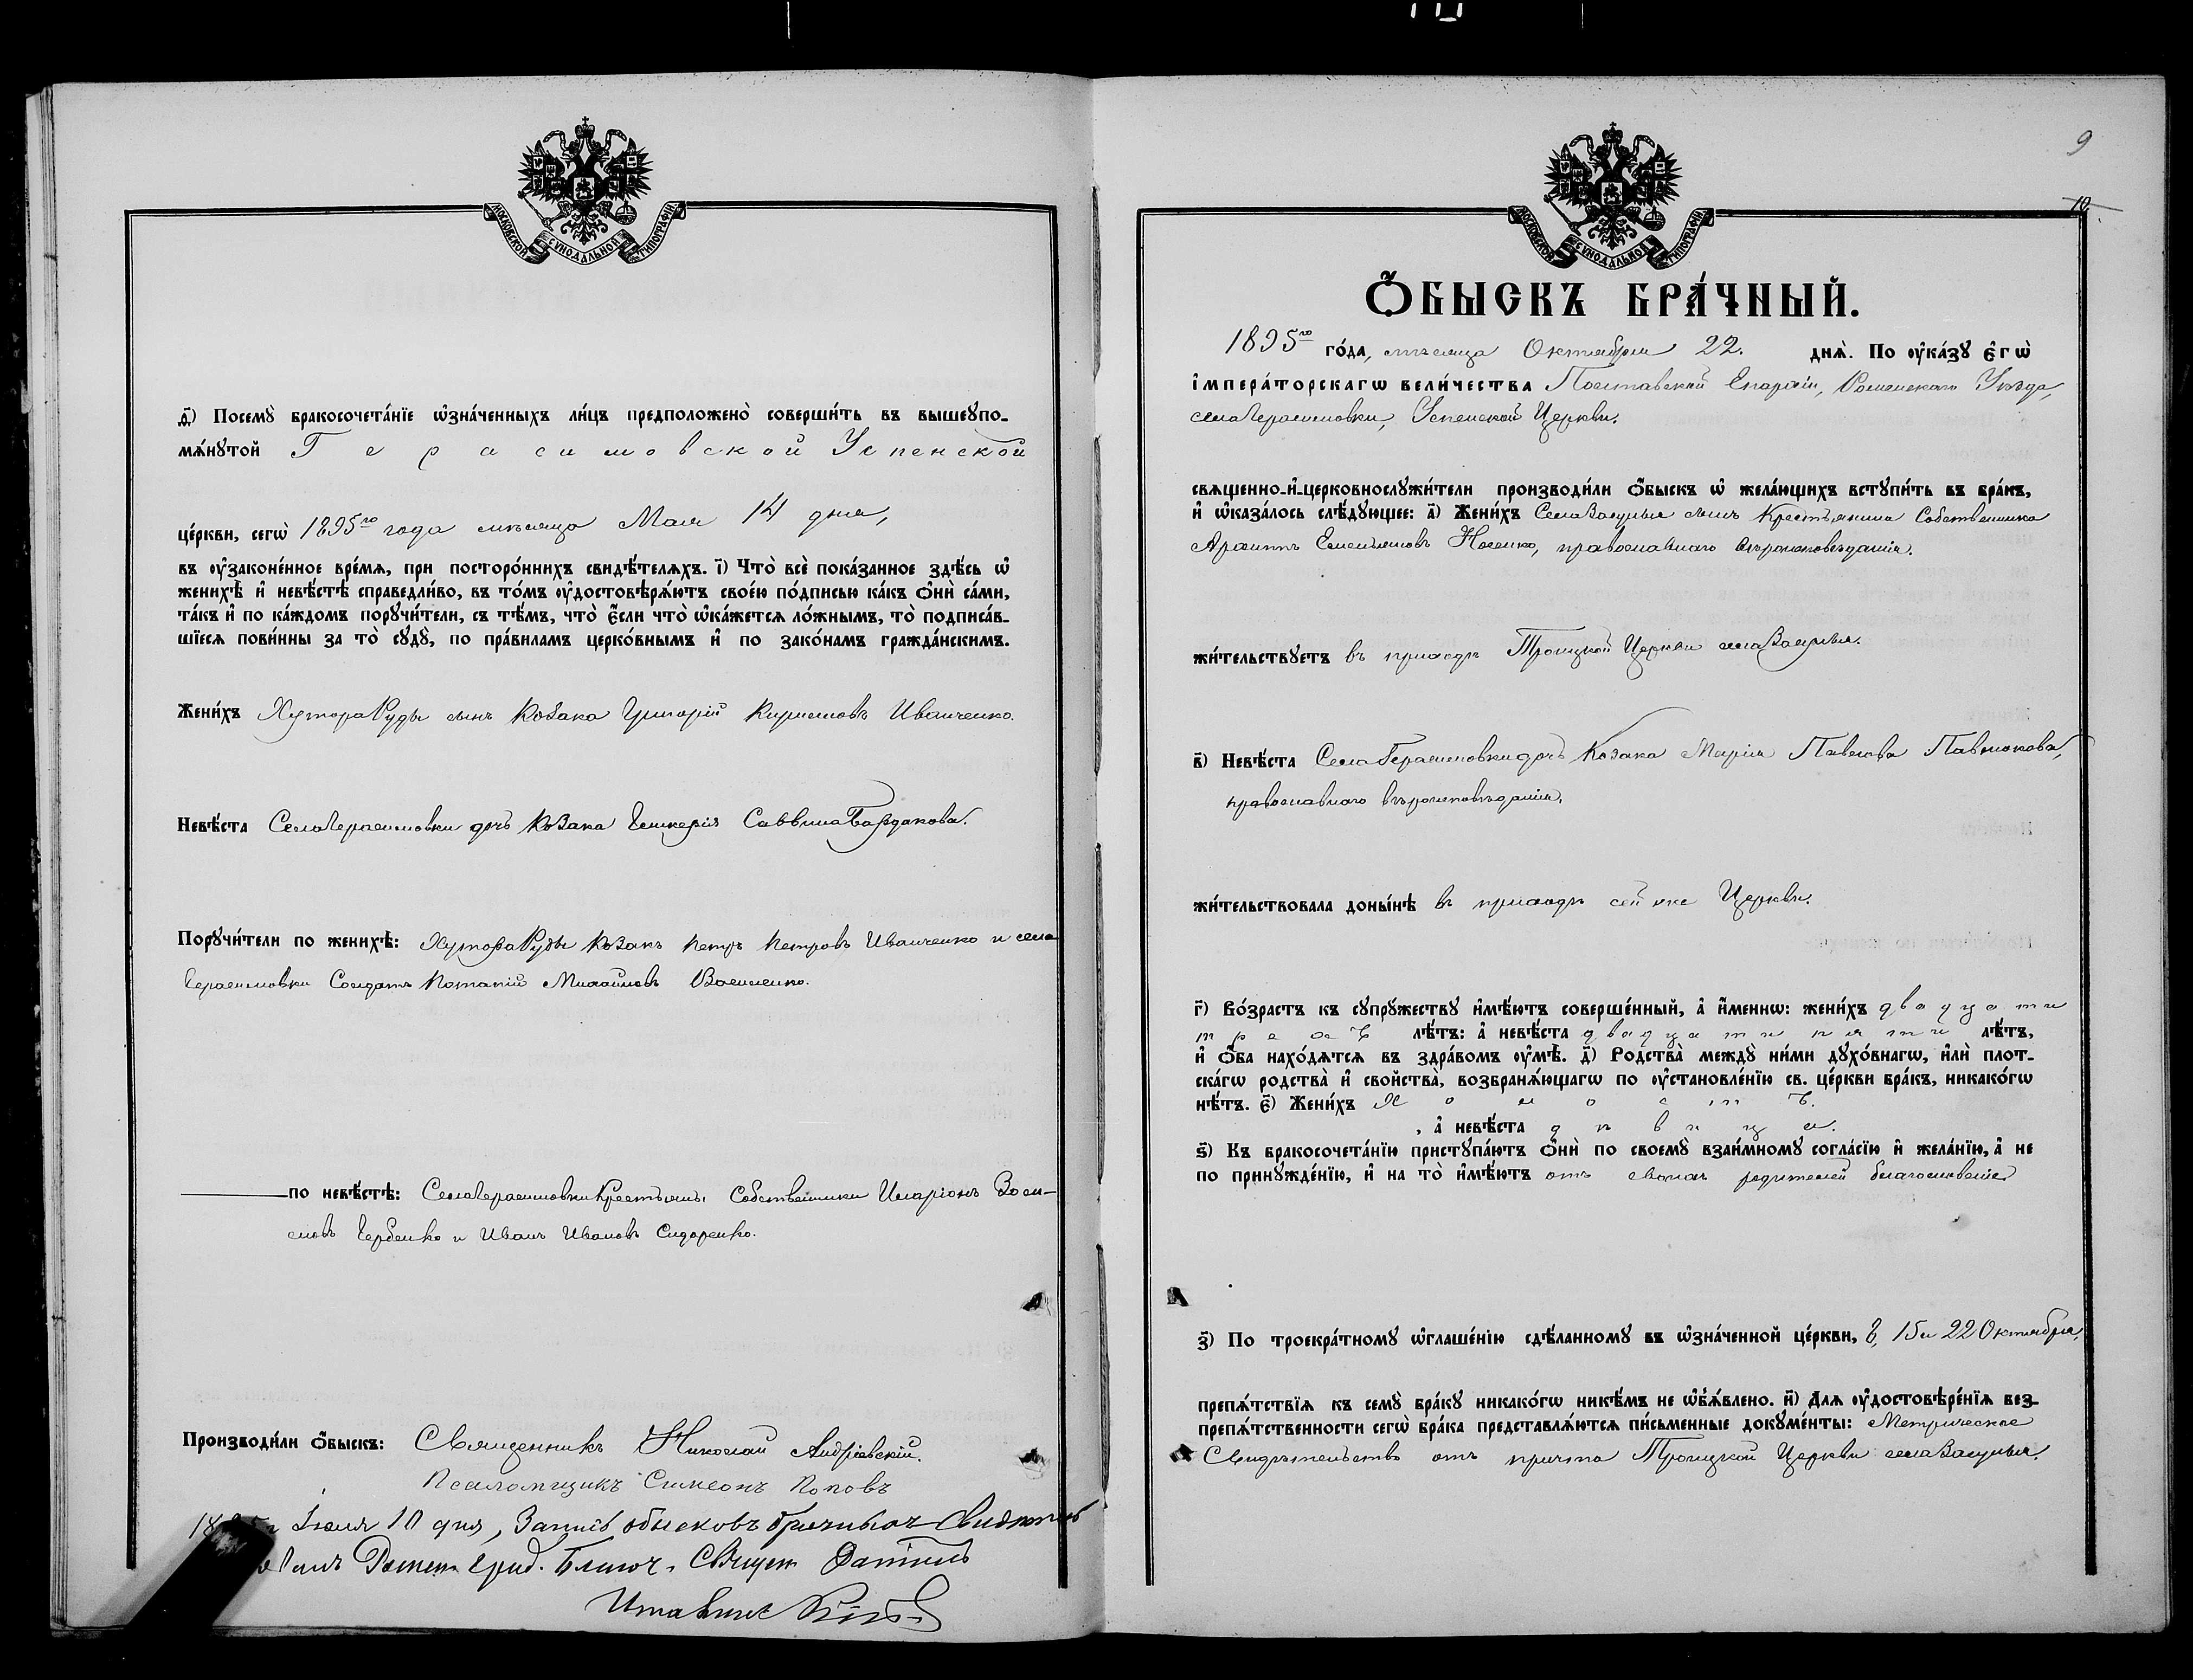 МОСКОВСКОЙ СѴНОДАЛЬНОЙ ТИПОГРАФІИ
д҃) Посемꙋ̀ бракосочета́нїе ѡ҆зна́ченныхъ ли́цъ предположено̀ соверши́ть въ вышеꙋпо-
мѧ́нꙋтой Герасимовской Успенской
це́ркви, сегѡ̀ 1895го года мѣсяца Мая 14 дня,
въ ᲂу҆законе́нное вре́мѧ, при посторо́ннихъ свидѣ́телѧхъ. і҃) Что̀ всѐ пока́занное здѣ́сь ѡ҆
женихѣ̀ и҆ невѣ́стѣ справедли́во, въ то́мъ ᲂу҆достовѣрѧ́ютъ свое́ю по́дписью ка́къ ѻ҆нѝ са́ми,
та́къ и҆ по ка́ждомъ порꙋчи́тели, съ тѣ́мъ, что̀ є҆́сли что̀ ѡ҆ка́жетсѧ ло́жнымъ, то̀ подписа́в-
шїесѧ пови́нны за то̀ сꙋдꙋ̀, по пра́виламъ церко́внымъ и҆ по зако́намъ гражда́нскимъ.
Жени́хъ Хутора Руды сынъ Козака Григорій Кириловъ Иванченко.
Невѣ́ста Села Герасимовки дочь Козака Гликерія Саввина Бардакова.
Порꙋчи́тели по женихѣ̀: Хутора Руды Козакъ Петръ Петровъ Иванченко и села
Герасимовки Солдатъ Потапій Михайловъ Василенко.
по невѣ́стѣ: Села Герасимовки Крестьяны Собственники Иларіонъ Васи-
ловъ Гербенко и Иванъ Ивановъ Сидоренко.
Производи́ли ѻ҆́быскъ: Священникъ Николай Андріевскій.
Псаломщикъ Симеонъ Поповъ
Іюля 10 дня, Запись обысковъ брачныхъ
Благоч. Священ.
9
10.
МОСКОВСКОЙ СѴНОДАЛЬНОЙ ТИПОГРАФІИ
Ѻ҆́БЫСКЪ БРА́ЧНЫЙ.
1895го го́да, мѣсяца Октября 22. днѧ̀. По ᲂу҆ка́зꙋ є҆гѡ̀
і҆мпера́торскагѡ вели́чества Полтавской Епархіи, Роменскаго Уѣзда,
села Герасимовки, Успенской Церкви.
свѧщенно-и҆-церковнослꙋжи́тели производи́ли ѻ҆́быскъ ѡ҆ жела́ющихъ встꙋпи́ть въ бра́къ,
и҆ ѡ҆каза́лось слѣ́дꙋющее: а҃) Жени́хъ Села Засулья сынъ Крестьянина Собственника
Архиппъ Емельяновъ Носенко, православнаго вѣроисповѣданія.
жи́тельствꙋетъ въ приходѣ Троицкой Церкви села Засулья.
в҃) Невѣ́ста Села Герасимовки дочь Козака Марія Павлова Павлюкова,
православнаго вѣроисповѣданія.
жи́тельствовала доны́нѣ въ приходѣ сей же Церкви.
г҃) Во́зрастъ къ сꙋпрꙋжествꙋ и҆мѣ́ютъ соверше́нный, а҆ и҆́менно: жени́хъ двадцати
трехъ лѣ́тъ: а҆ невѣ́ста двадцати пяти лѣ́тъ,
и҆ ѻ҆́ба нахо́дѧтсѧ въ здра́вомъ ᲂу҆мѣ̀. д҃) Родства̀ междꙋ̀ ни́ми дꙋхо́внагѡ, и҆лѝ плот-
ска́гѡ родства̀ и҆ свойства̀, возбранѧ́ющагѡ по ᲂу҆становле́нїю св. це́ркви бра́къ, никако́гѡ
нѣ́тъ. є҃) Жени́хъ Холостъ.
, а҆ невѣ́ста дѣвица.
ѕ҃) Къ бракосочета́нїю пристꙋпа́ютъ ѻ҆нѝ по своемꙋ̀ взаи́мномꙋ согла́сїю и҆ жела́нїю, а҆ не
по принꙋжде́нїю, и҆ на то̀ и҆мѣ́ютъ отъ своихъ родителей благословеніе
з҃) По троекра́тномꙋ ѡ҆глаше́нїю сдѣ́ланномꙋ въ ѡ҆зна́ченной це́ркви, 8, 15 и 22 Октября,
препѧ́тствїѧ къ семꙋ̀ бра́кꙋ никако́гѡ никѣ́мъ не ѡ҆б̾ѧ́влено. и҃) Для ᲂу҆достовѣре́нїѧ без-
препѧ́тственности сегѡ̀ бра́ка представлѧ́ютсѧ пи́сьменные докꙋме́нты: Метрическое
Свидѣтельство отъ причта Троицкой Церкви села Засулья.